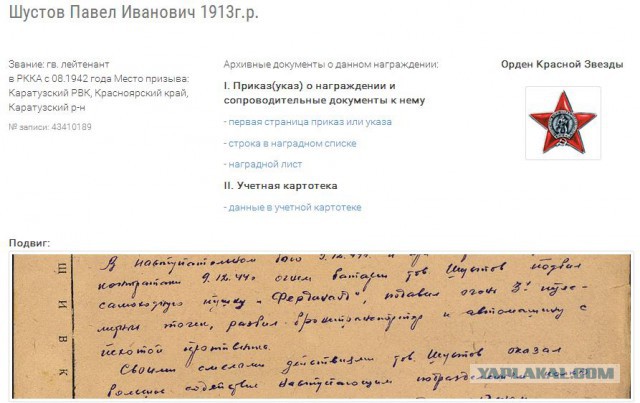 Шустов Павел Иванович 1913г.р.
Звание: гв. лейтенант
в РККА с 08.1942 года Место призыва:
Каратузский РВК, Красноярский край,
Каратузский р-н
№ записи: 43410189
Архивные документы о данном награждении:
I. Приказ(указ) о награждении и
сопроводительные документы к нему
- первая страница приказ или указа
- строка в наградном списке
- наградной лист
II. Учетная картотека
- данные в учетной картотеке
Орден Красной Звезды
Подвиг:
В наступательном бою 9.12.44г. и при
контратаке 9.12.44г огнем батареи тов Шустов подбил
самоходную пушку "Фердинанд", подавил огонь 3х пуле-
мётных точек, разбил бронетранспортер и автомашину с
пехотой противника.
Своими смелыми действиями тов. Шустов оказал
большое содействие наступающим подразделениям
Ш И В К
YAPLAKAL.COM